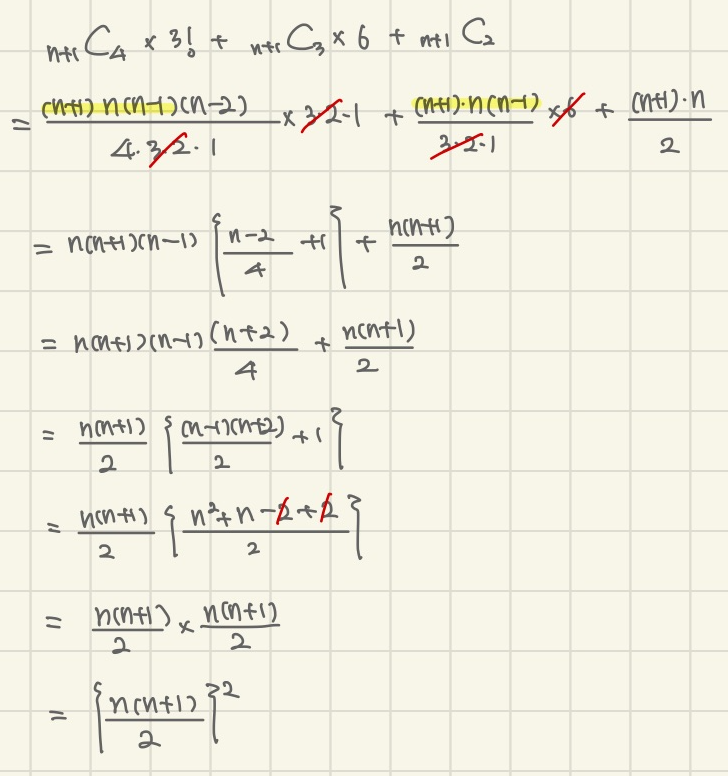 ₙ₊₁C₄ × 3! + ₙ₊₁C₃ × 6 + ₙ₊₁C₂
= (n+1)·n(n-1)(n-2)/4·3·2·1 × 3·2·1 + (n+1)·n(n-1)/3·2·1 × 6 + (n+1)·n/2
= n(n+1)(n-1) { (n-2)/4 + 1 } + n(n+1)/2
= n(n+1)(n-1) (n+2)/4 + n(n+1)/2
= n(n+1)/2 { (n-1)(n+2)/2 + 1 }
= n(n+1)/2 { (n²+n-2+2)/2 }
= n(n+1)/2 × n(n+1)/2
= { n(n+1)/2 }²